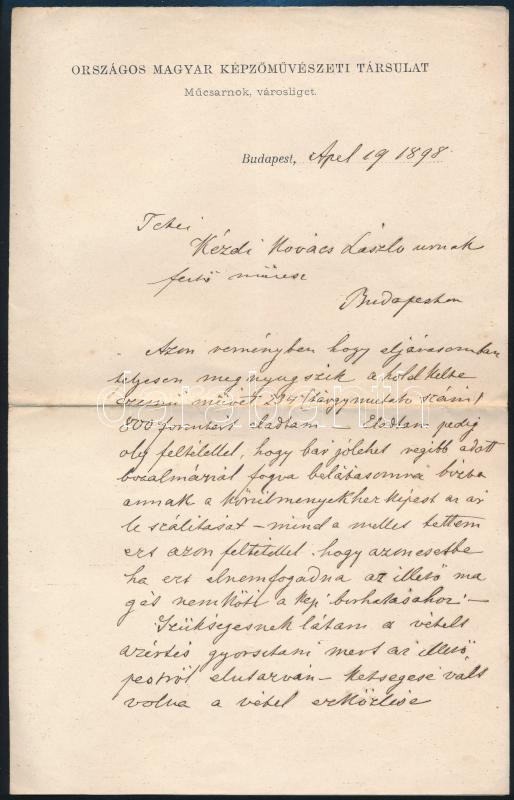 ORSZÁGOS MAGYAR KÉPZŐMŰVÉSZETI TÁRSULAT
Műcsarnok, városliget.
Budapest, Apl 19 1898.
Tekei
Kézdi Kovács László urnak
festő művesz
Budapesten
Azon reményben hogy eljárásomban
teljesen megnyugszik a holdkelte
czimü művét 294 (tárgymutató szám)
800 forintért eladtam – Eladtam pedig
oly feltétellel, hogy bár jólehet végibb adott
bizalmánál fogva belátásomra bizva
annak a körülményekhez képest az ár
le szálitását – mind a mellett tettem
ezt azon feltétellel hogy azon esetbe
ha ezt elnemfogadna az illető ma
gát nem köti a kép birhatásához –
Szükségesnek látam a vételt
azértis gyorsitani mert az illető
pestről elutazván – kétségesé vált
volna a vétel eszközlése